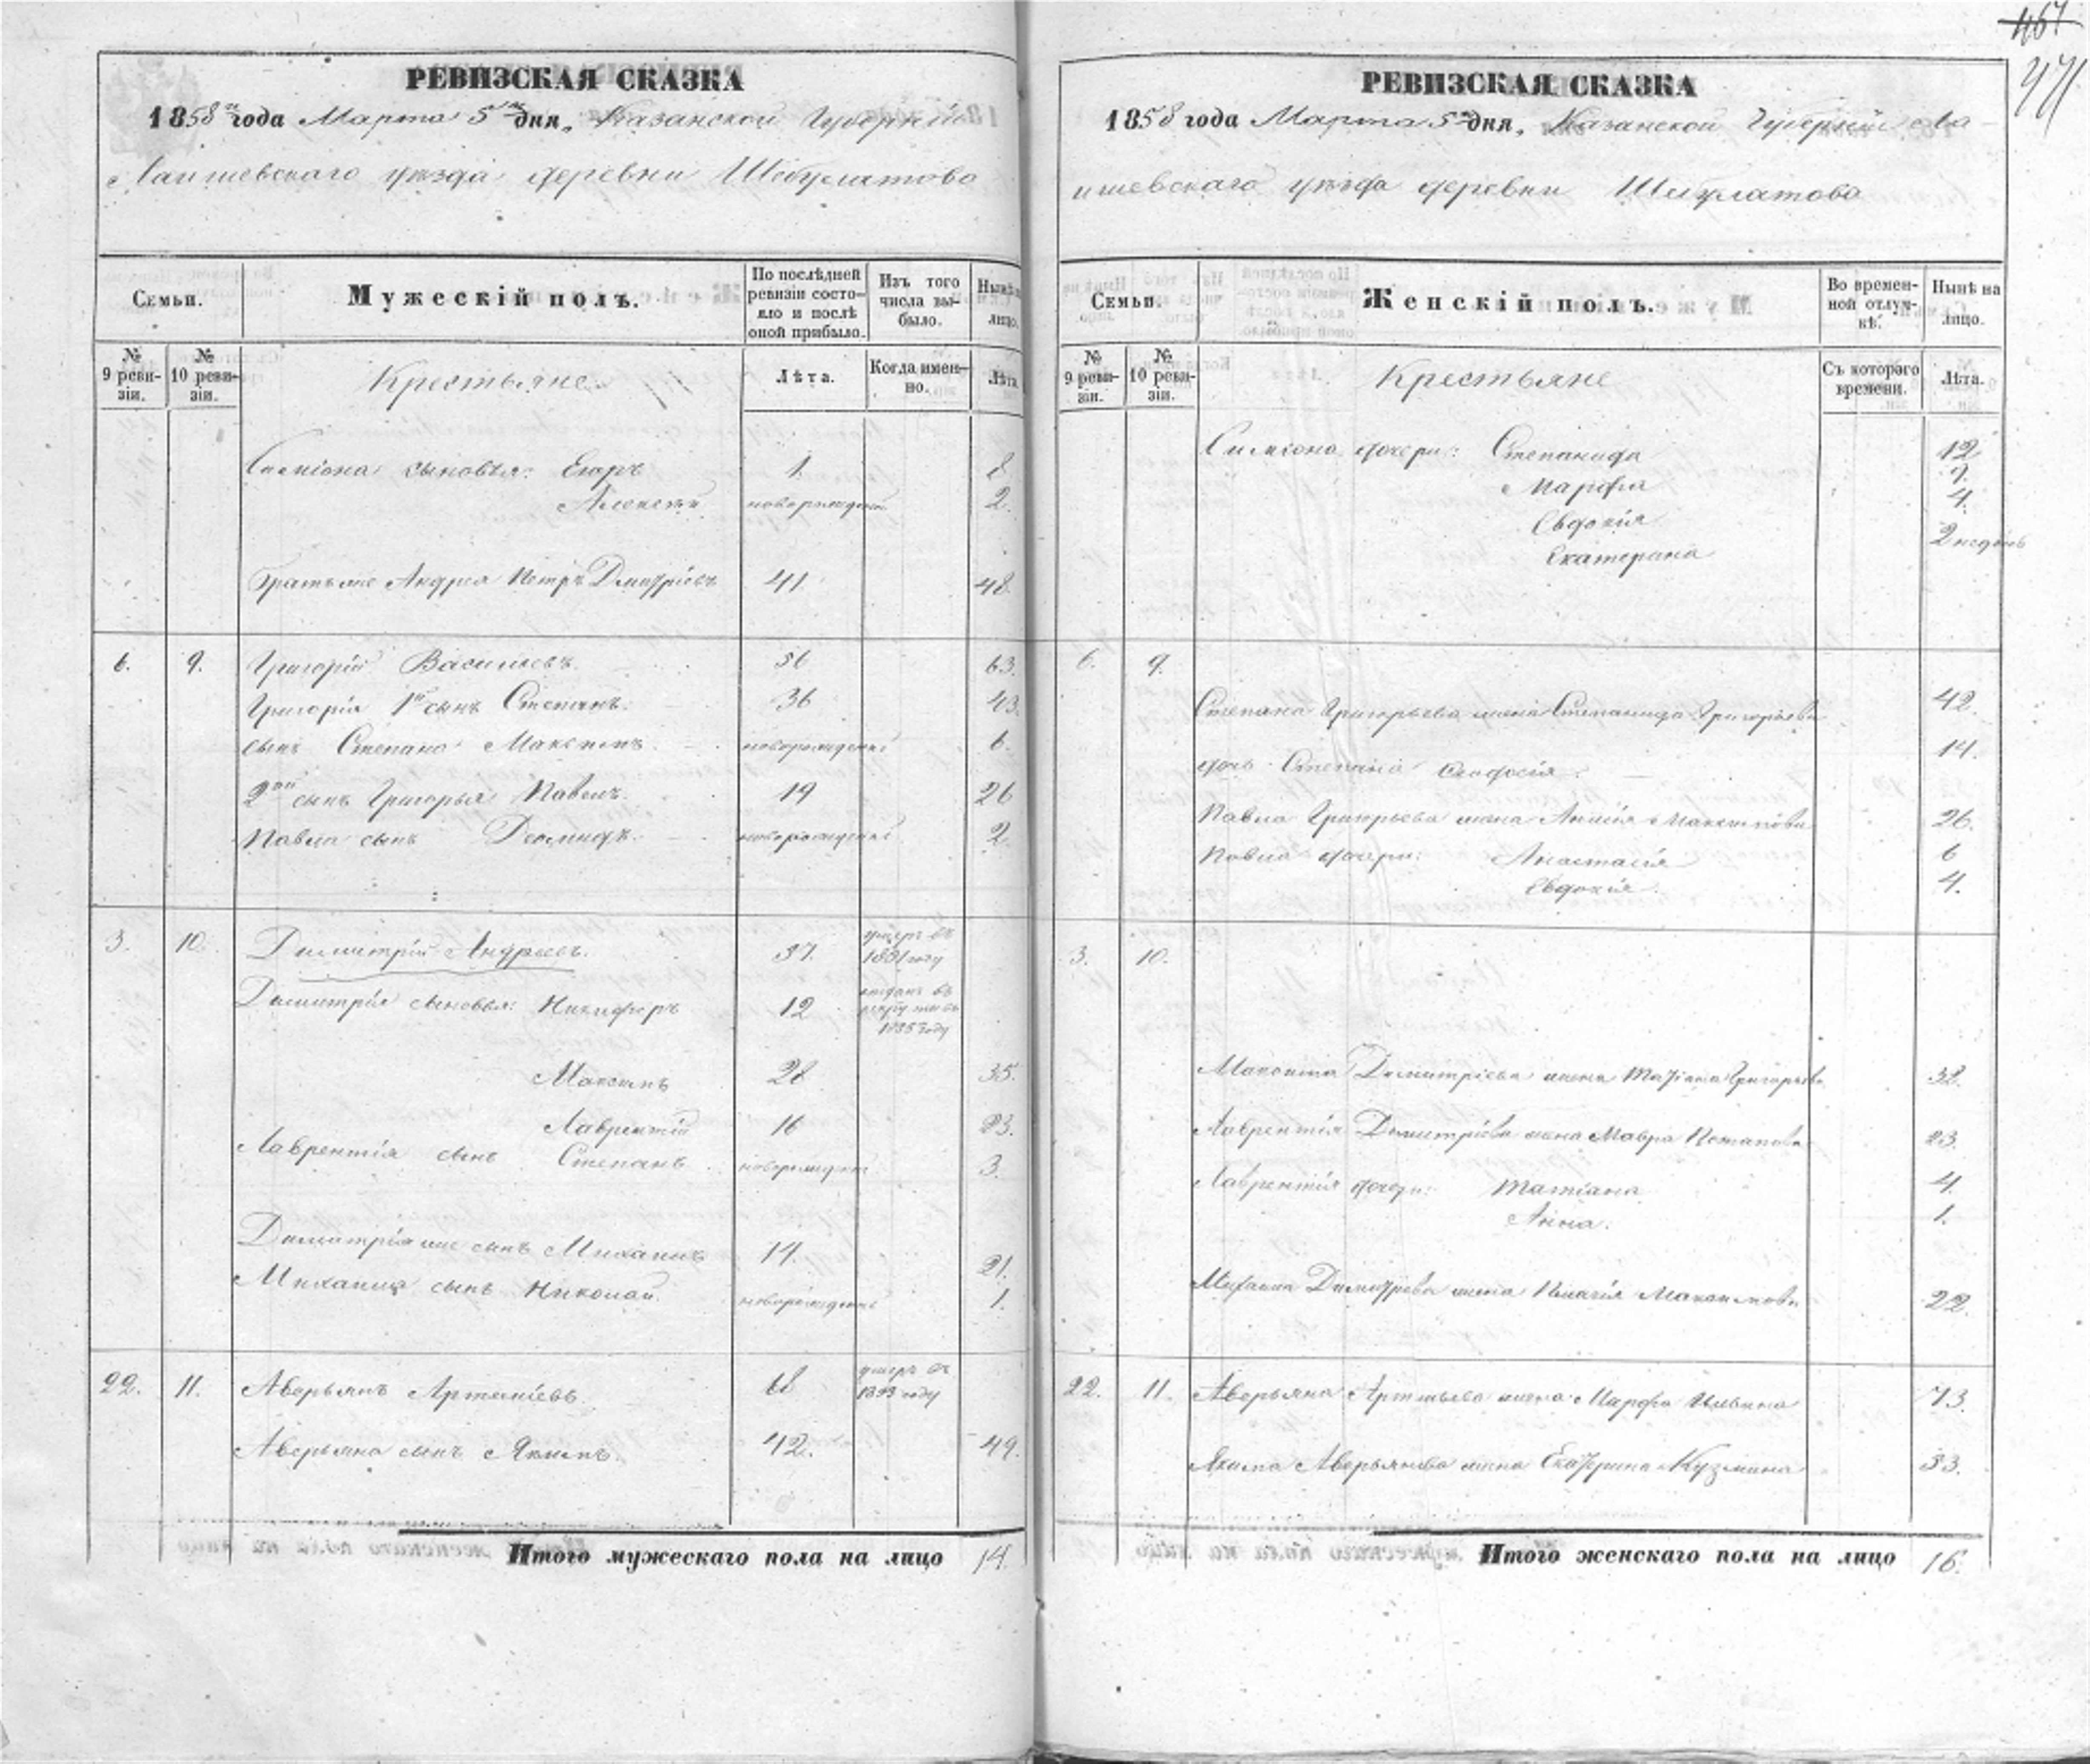 467
471
РЕВИЗСКАЯ СКАЗКА
1858го года Марта 5го дня, Казанской Губерніи
Лаишевскаго уѣзда деревни Шебулатово
Семьи.
Мужескій полъ.
По послѣдней ревизіи состояло и послѣ оной прибыло.
Изъ того числа выбыло.
Нынѣ на лицо.
№ 9 ревизіи.
№ 10 ревизіи.
Крестьяне
Лѣта.
Когда именно.
Лѣта.
Симіона сыновья: Егоръ 1. 8
Алексѣй новорожденъ 2.
Братьяне Андрея Петръ Дмитріевъ 41. 48.
6. 9. Григорій Васильевъ. 56 63.
Григорія 1й сынъ Степанъ. 36 43.
сынъ Степана Максимъ. новорожденъ 6.
2ой сынъ Григорья Павелъ. 19 26
Павла сынъ Деомидъ. новорожденъ 2.
3. 10. Димитрій Андреевъ. 57. умеръ въ 1851 году
Димитрія сыновья: Никифоръ 12 отданъ въ рекруты въ 1855 году
Максимъ 28 35.
Лаврентій 16 23.
Лаврентія сынъ Степанъ новорожденъ 3.
Димитрія же сынъ Михаилъ 14. 21.
Михаила сынъ Николай. новорожденъ 1.
22. 11. Аверьянъ Артеміевъ 68 умеръ въ 1853 году
Аверьяна сынъ Якимъ. 42. 49.
Итого мужескаго пола на лицо 14.
РЕВИЗСКАЯ СКАЗКА
1858 года Марта 5го дня, Казанской Губерніи Ла
ишевскаго уѣзда деревни Шебулатово
Семьи.
Женскій полъ.
Во временной отлучкѣ.
Нынѣ на лицо.
№ 9 ревизіи.
№ 10 ревизіи.
Крестьяне
Съ котораго времени.
Лѣта.
Симіона дочери: Степанида 12
Марфа 7.
Евдокія 4.
Екатерина 2 недѣль
6. 9.
Степана Григорьева жена Степанида Григорьева 42.
дочь Степана 14.
Павла Григорьева жена Анисія Максимова 26.
Павла дочери: Анастасія 6
Евдокія. 4.
3. 10.
Максима Димитріева жена Татіана Григорьева 32.
Лаврентія Димитріева жена Мавра Потапова 23.
Лаврентія дочери: Татіана 4.
Анна. 1.
Михаила Димитріева жена Пелагія Максимова 22.
22. 11. Аверьяна Артемьева жена Марфа Ильина 73.
Якима Аверьянова жена Екатерина Кузмина 53.
Итого женскаго пола на лицо 16.